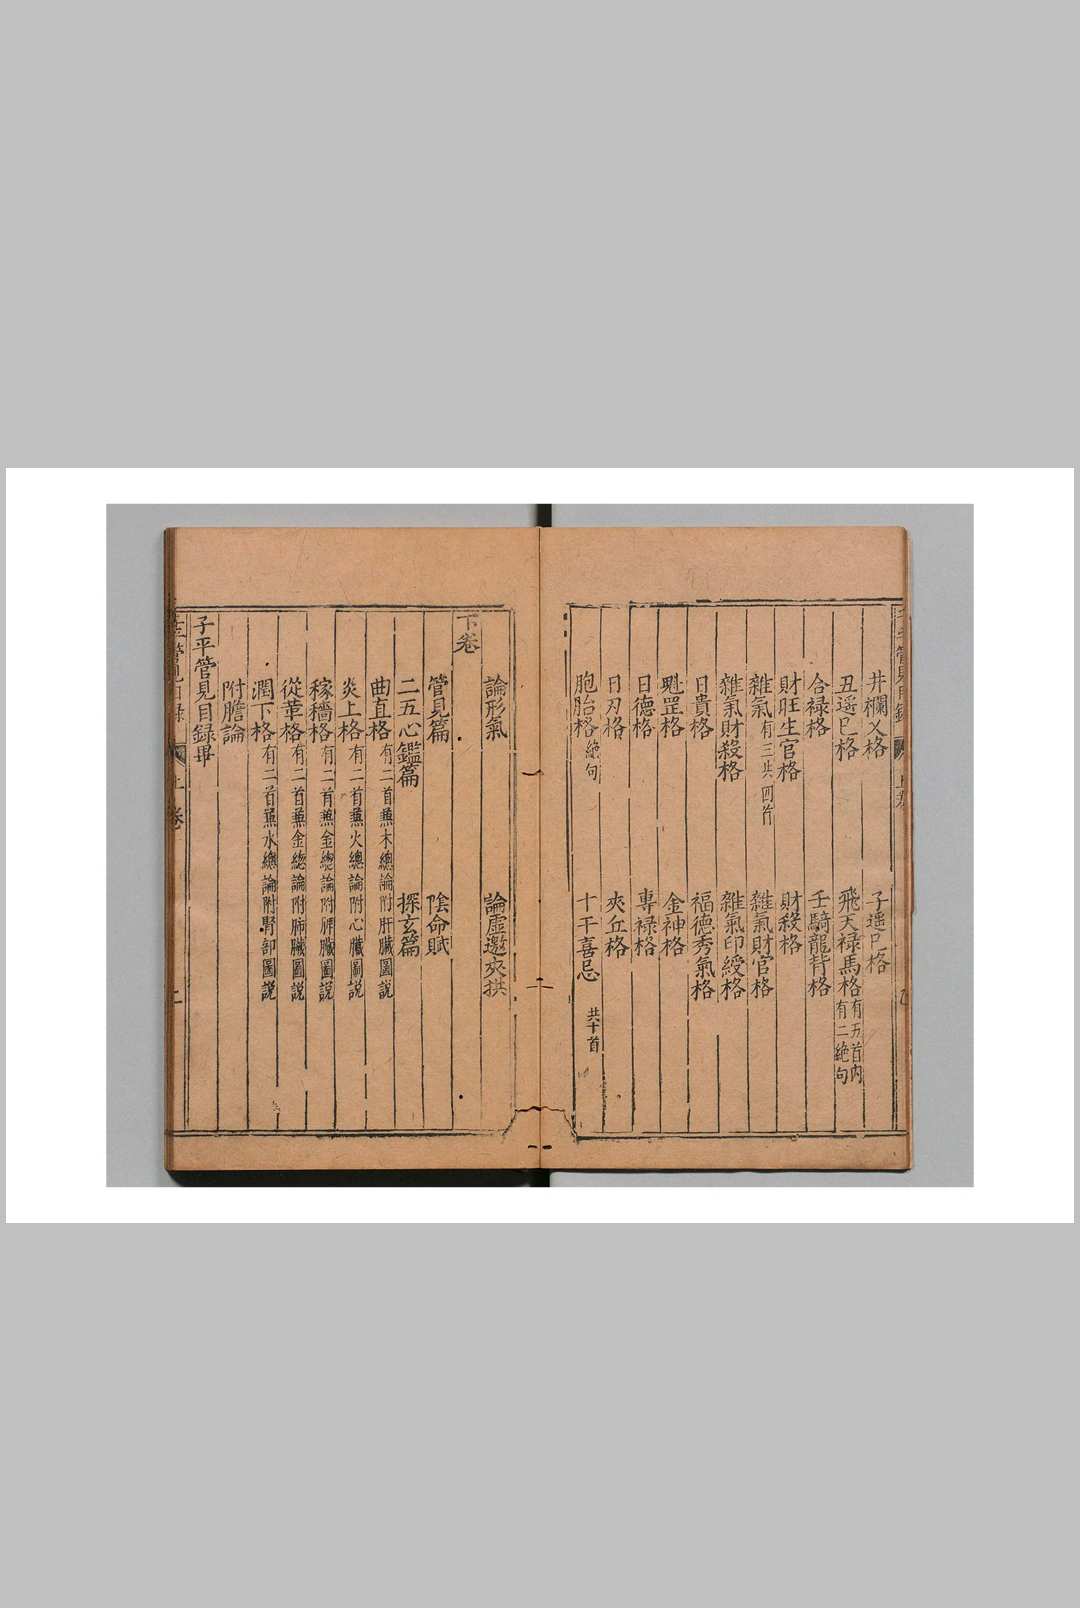 子平管見目錄 上卷
井欄叉格 子遥巳格
丑遥巳格 飛天禄馬格 有五首内有二絶句
合禄格 壬騎龍背格
財旺生官格 財殺格
雜氣 有三共四首 雜氣財官格
雜氣財殺格 雜氣印綬格
日貴格 福德秀氣格
魁罡格 金神格
日德格 專禄格
日刃格 夾丘格
胞胎格 絶句 十干喜忌 共十首
論形氣 論虛邀夾拱
下卷
管見篇 陰命賦
二五心鑑篇 探玄篇
曲直格 有二首兼木總論附肝臟圖説
炎上格 有二首兼火總論附心臟圖説
稼穡格 有二首兼金總論附脾臟圖説
從革格 有二首兼金總論附肺臟圖説
潤下格 有二首兼水總論附腎部圖説
附膽論
子平管見目録畢
子平管見目錄 上卷